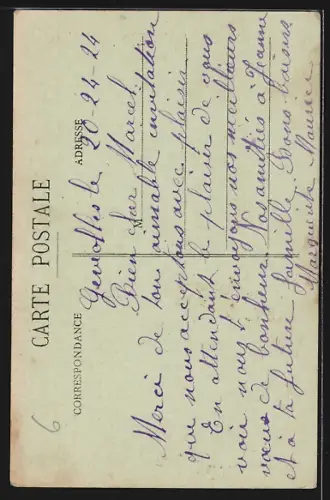 CARTE POSTALE
CORRESPONDANCE
ADRESSE
le 20-24-24
Bien cher Marcel
Merci de ton aimable invitation
que nous acceptons avec plaisir
En attendant le plaisir de vous
voir nous t'envoyons nos meilleurs
vœux de bonheur Nos amitiés à Jeanne
et à ta future famille Bons baisers
Marguerite Maurice
6